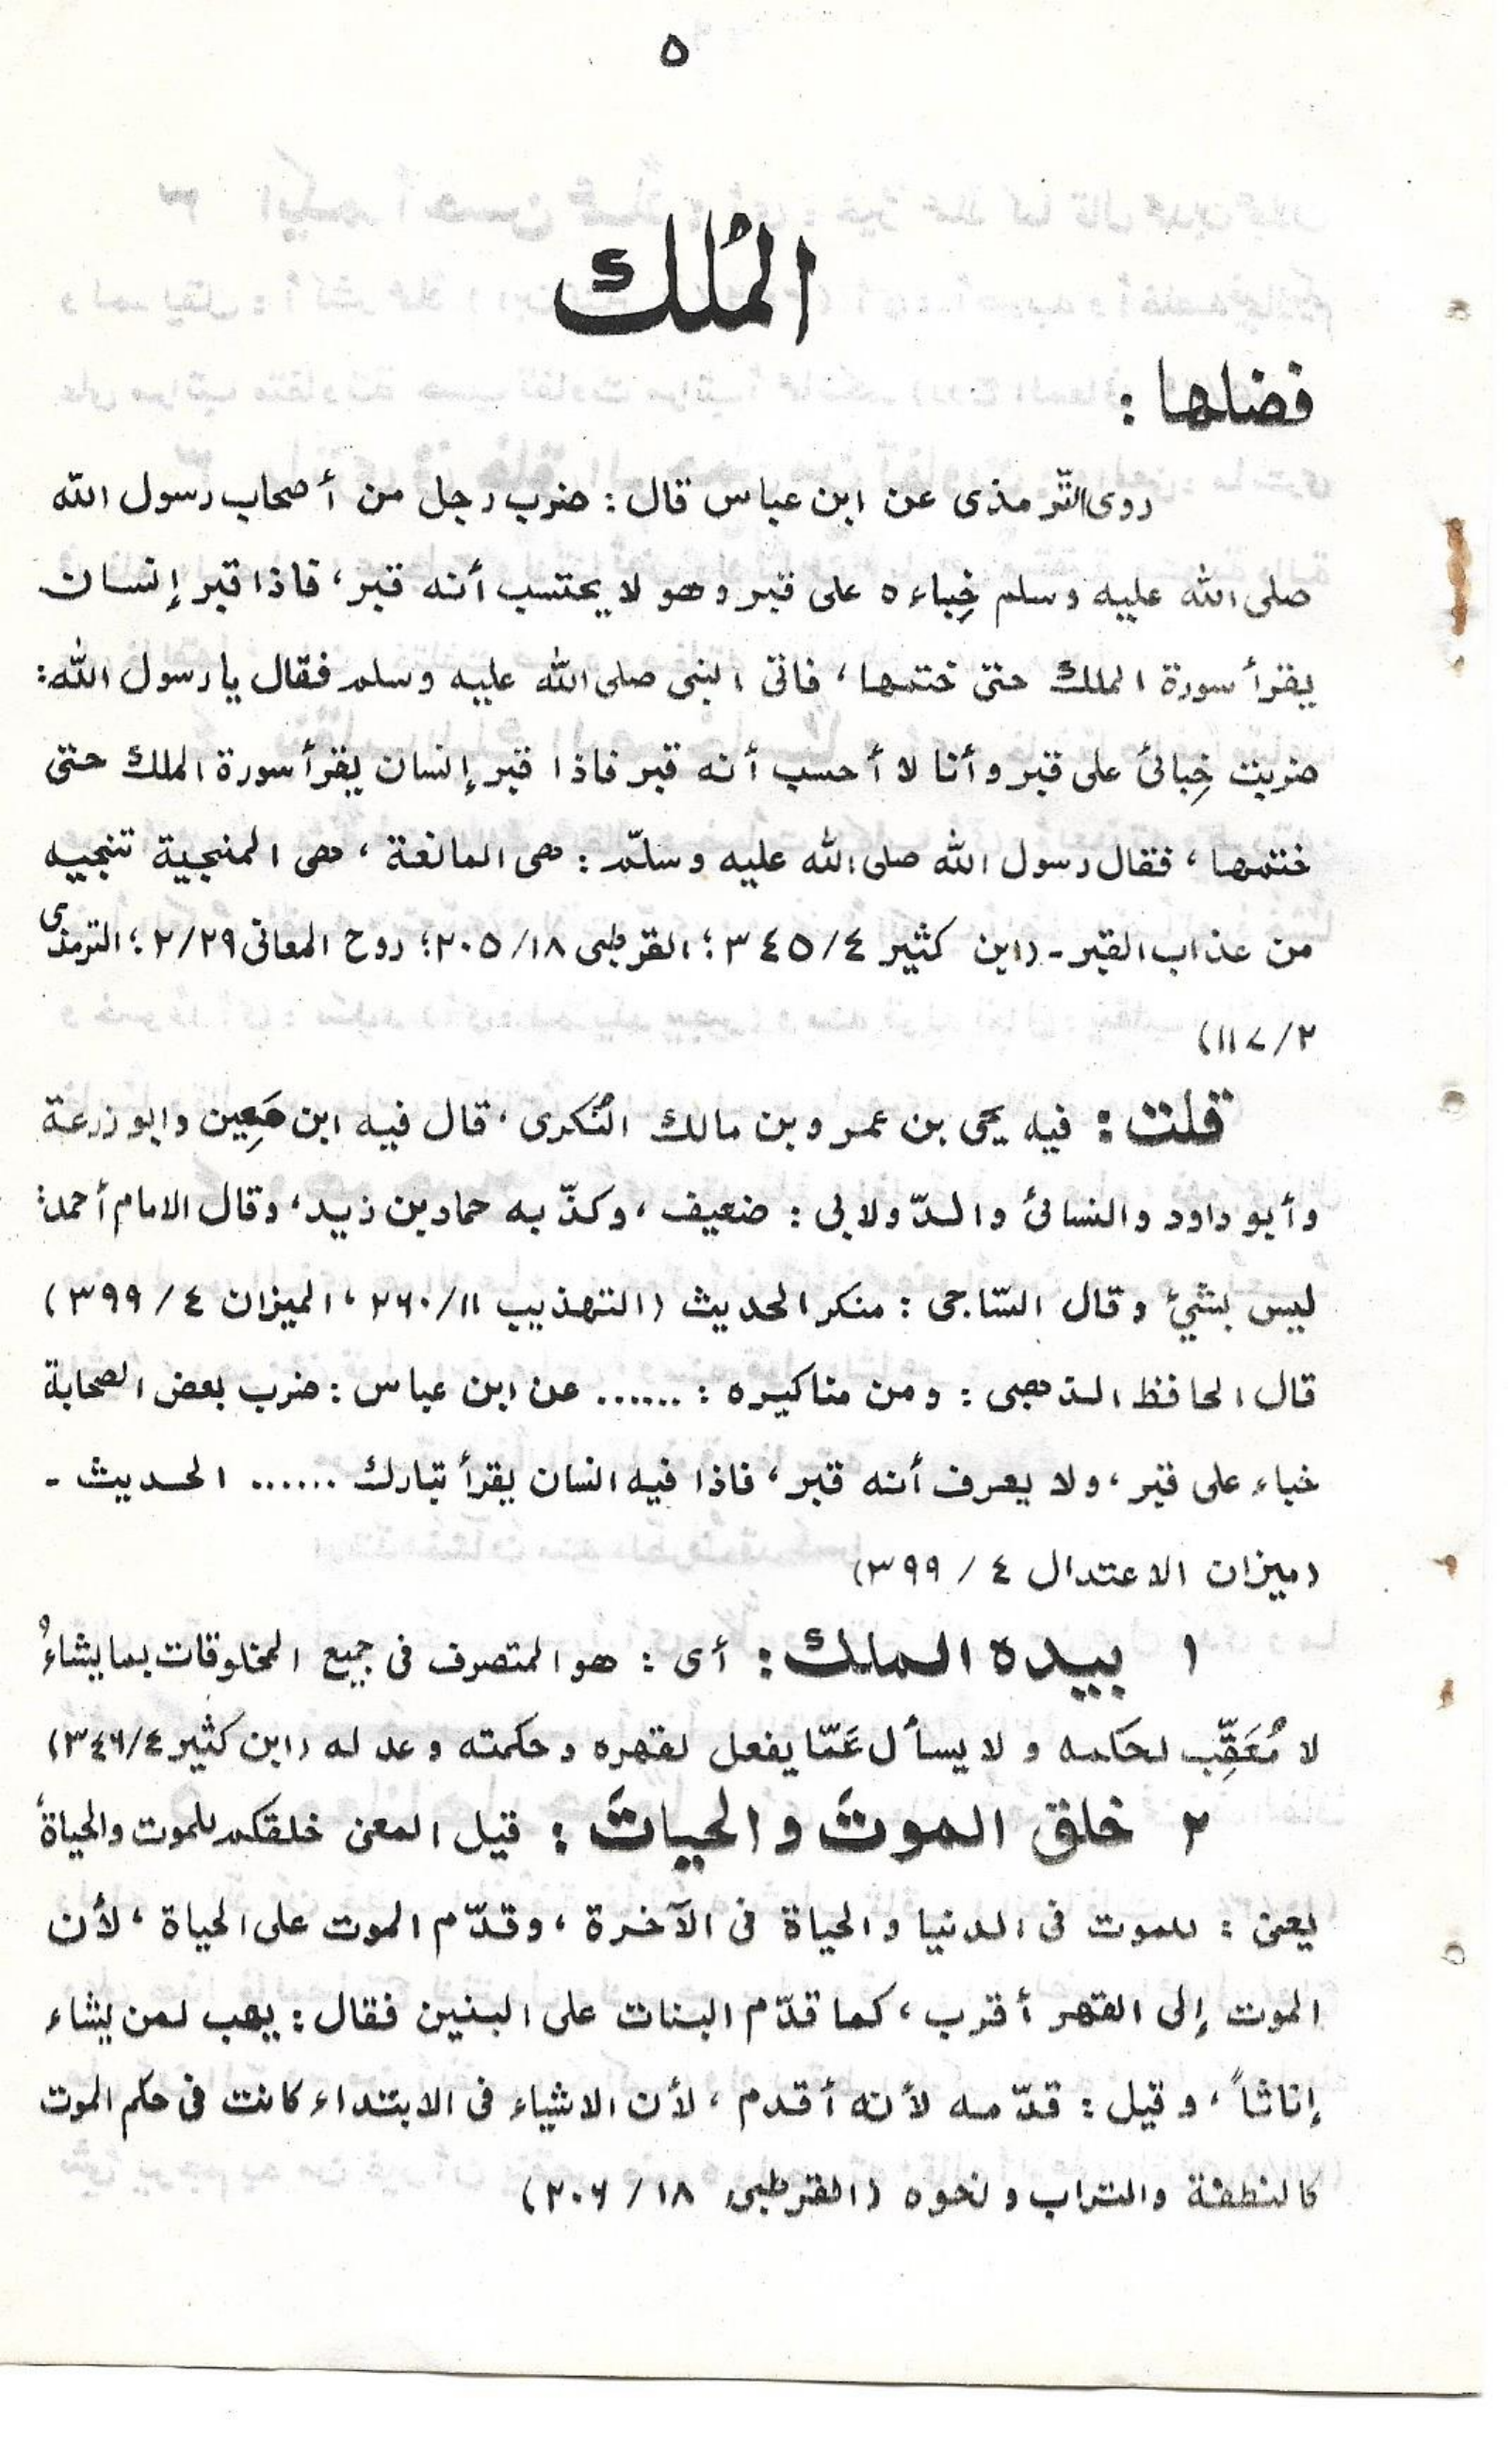 ٥
المُلك
فضلها :
روى التّرمذى عن ابن عباس قال : ضرب رجل من أصحاب رسول الله
صلى الله عليه وسلم خِباءه على قبر وهو لا يحتسب أنه قبر، فاذا قبر إنسان
يقرأ سورة الملك حتى ختمها، فاتى النبى صلى الله عليه وسلم فقال يا رسول الله:
ضربت خِبائى على قبر وأنا لا أحسب أنه قبر فاذا قبر إنسان يقرأ سورة الملك حتى
ختمها، فقال رسول الله صلى الله عليه وسلّم : هى المانعة ، هى المنجية تنجيه
من عذاب القبر ـ (ابن كثير ٣٤٥/٤؛ القرطبى ٢٠٥/١٨؛ روح المعانى ٢/٢٩؛ الترمذى
١١٧/٢)
قلت : فيه يحى بن عمرو بن مالك النُكرى، قال فيه ابن مَعِين وابو زرعة
وأبو داود والنسائى والدّولابى : ضعيف ، وكذّبه حماد بن زيد، وقال الامام أحمد:
ليس بشئ وقال السّاجى : منكر الحديث (التهذيب ٢٦٠/١١ ، الميزان ٣٩٩/٤)
قال الحافظ الذهبى : ومن مناكيره : ...... عن ابن عباس : ضرب بعض الصحابة
خباء على قبر، ولا يعرف أنه قبر، فاذا فيه انسان يقرأ تبارك ...... الحديث ـ
(ميزان الاعتدال ٣٩٩/٤)
١ بيده الملك : أى : هو المتصرف فى جميع المخلوقات بما يشاءُ
لا مُعَقِّب لحكمه و لا يسأل عَمّا يفعل لقهره وحكمته وعدله (ابن كثير ٣٤٦/٤)
٢ خلق الموتَ والحياتَ : قيل المعنى خلقكم للموت والحياة،
يعنى : للموت فى الدنيا والحياة فى الآخرة ، وقدّم الموت على الحياة ، لأن
الموت إلى القهر أقرب ، كما قدّم البنات على البنين فقال : يهب لمن يشاء
إناثاً ، وقيل : قدّمه لأنه أقدم ، لأن الاشياء فى الابتداء كانت فى حكم الموت
كالنطفة والتراب ونحوه (القرطبى ٢٠٦/١٨)